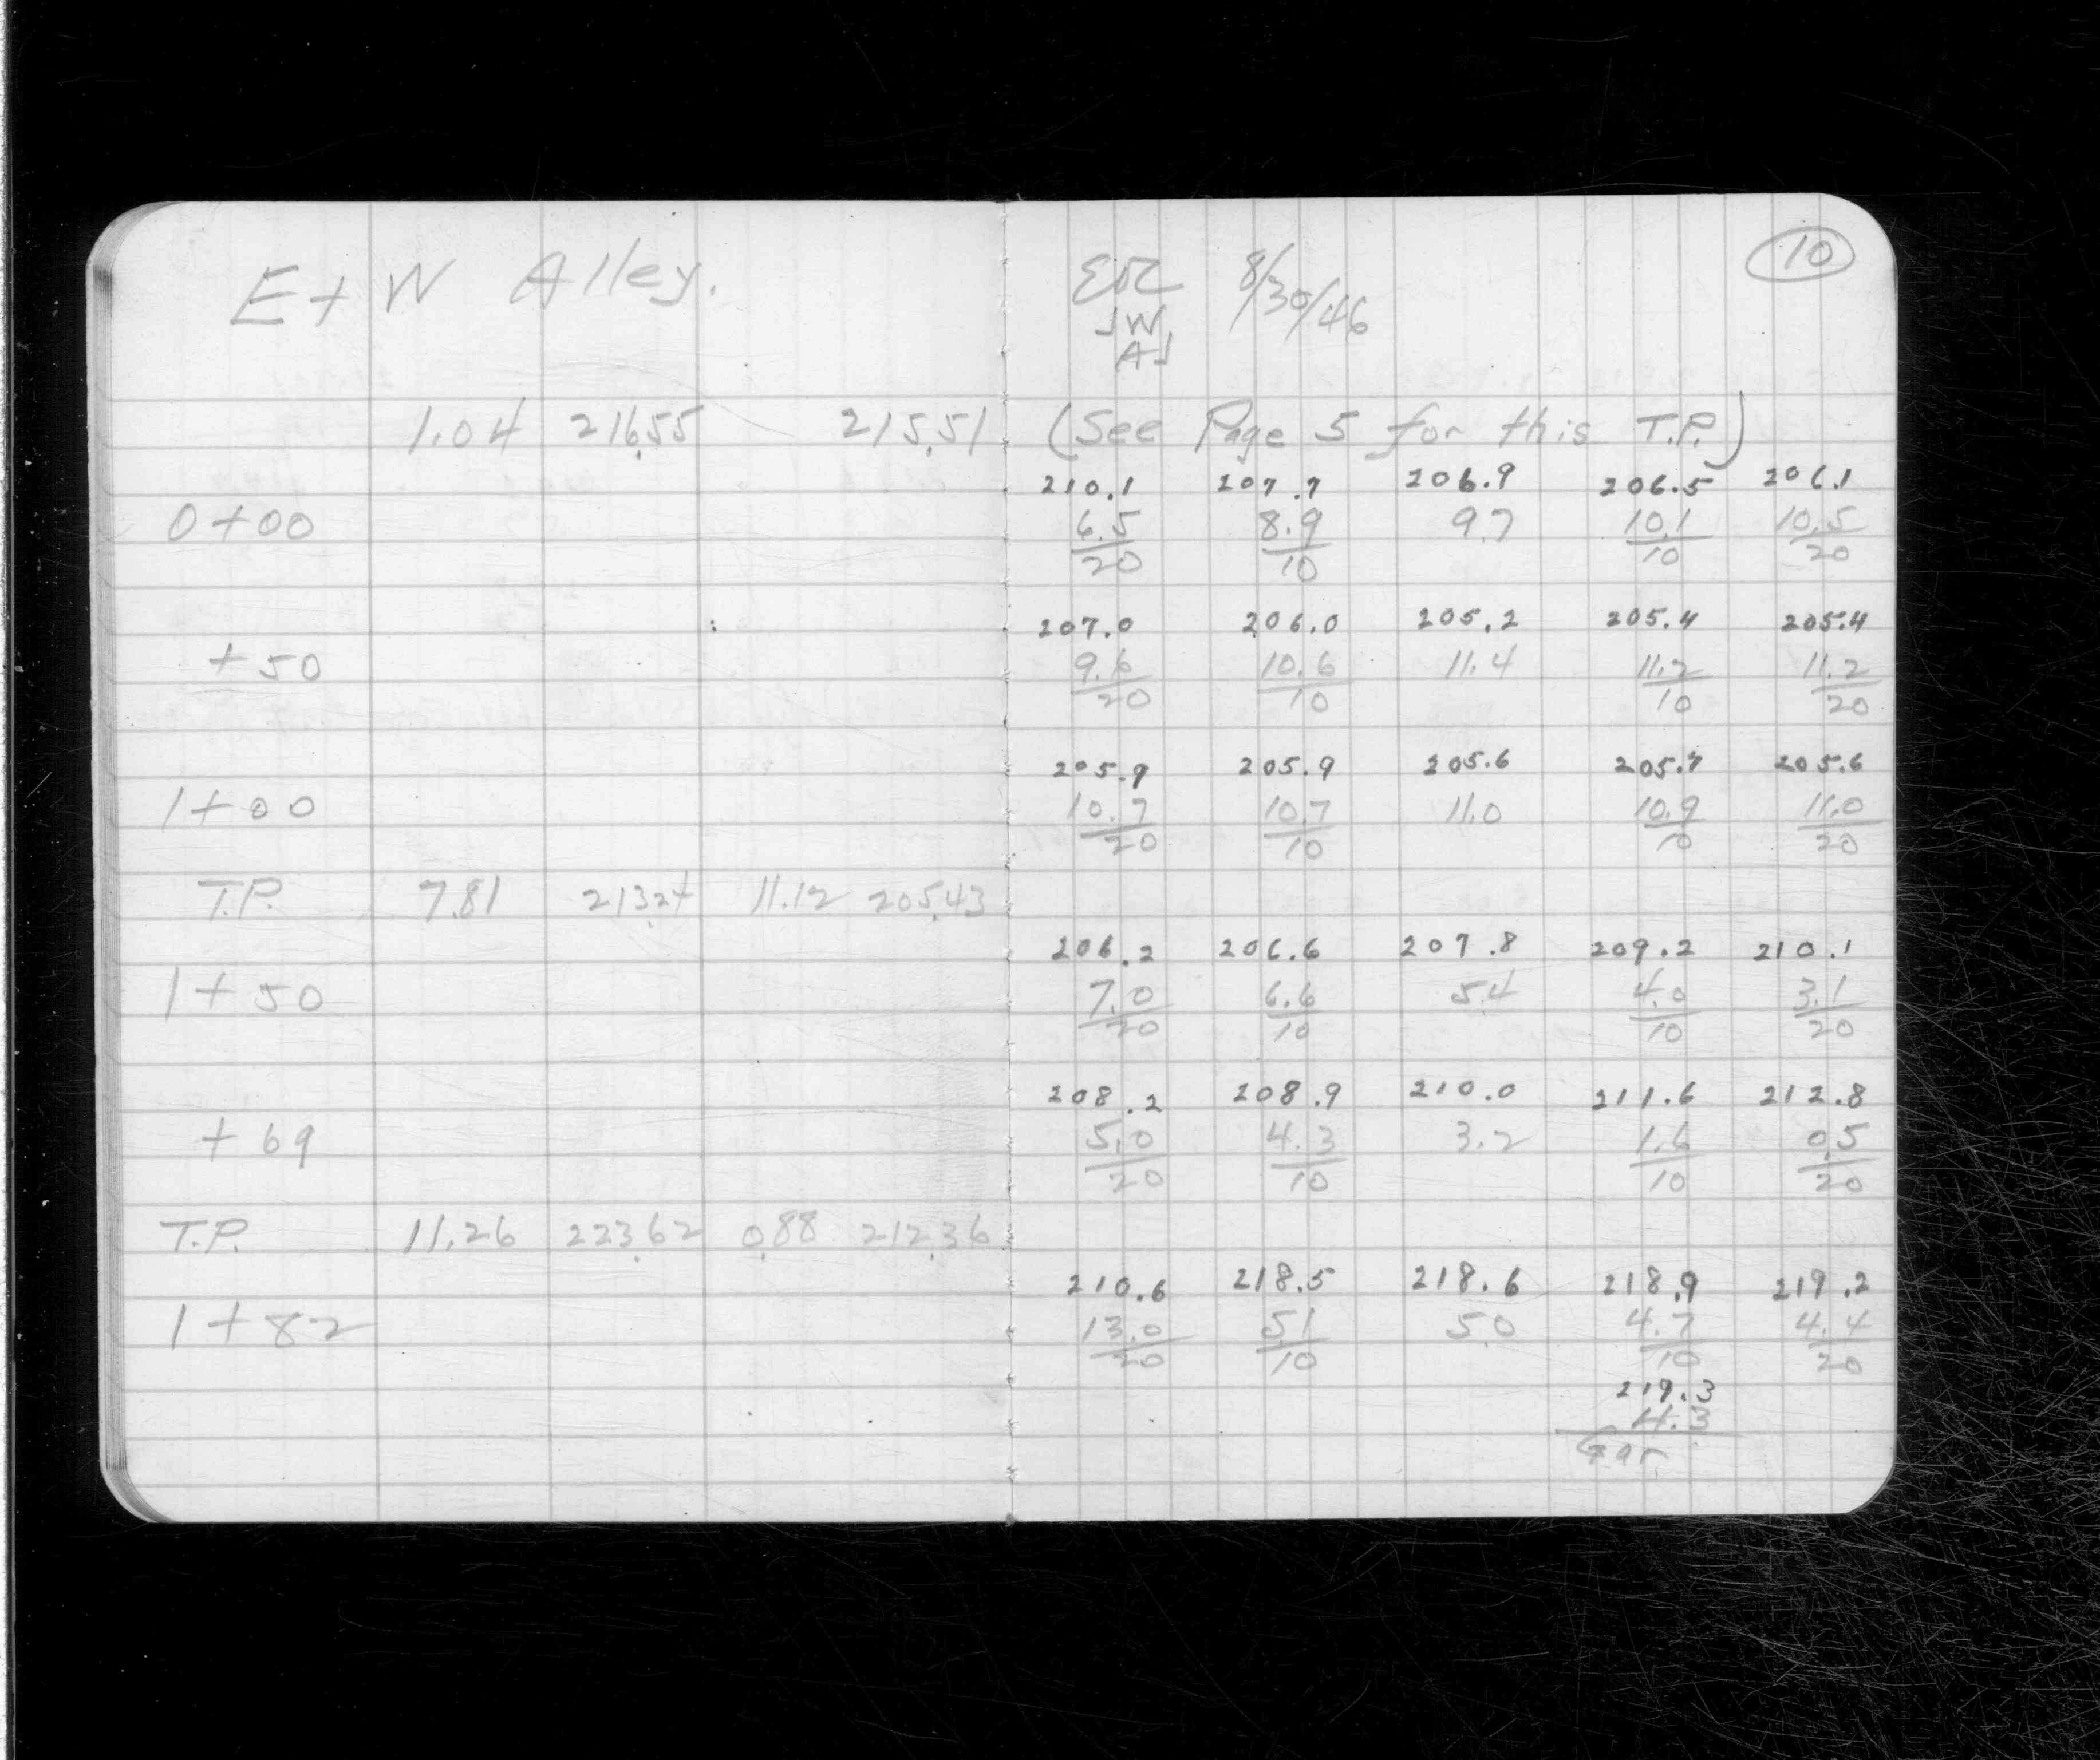 E + W Alley. 8/30/46 10
JW
AJ
1.04 216.55 215.51 (See Page 5 for this T.P.)
210.1 207.7 206.9 206.5 206.1
0+00 6.5 8.9 9.7 10.1 10.5
20 10 10 20
207.0 206.0 205.2 205.4 205.4
+50 9.6 10.6 11.4 11.2 11.2
20 10 10 20
205.9 205.9 205.6 205.7 205.6
1+00 10.7 10.7 11.0 10.9 11.0
20 10 10 20
T.P. 7.81 213.24 11.12 205.43
206.2 206.6 207.8 209.2 210.1
1+50 7.0 6.6 5.4 4.0 3.1
20 10 10 20
208.2 208.9 210.0 211.6 212.8
+69 5.0 4.3 3.2 1.6 0.5
20 10 10 20
T.P. 11.26 223.62 0.88 212.36
210.6 218.5 218.6 218.9 219.2
1+82 13.0 5.1 5.0 4.7 4.4
20 10 10 20
219.3
4.3
Gar.